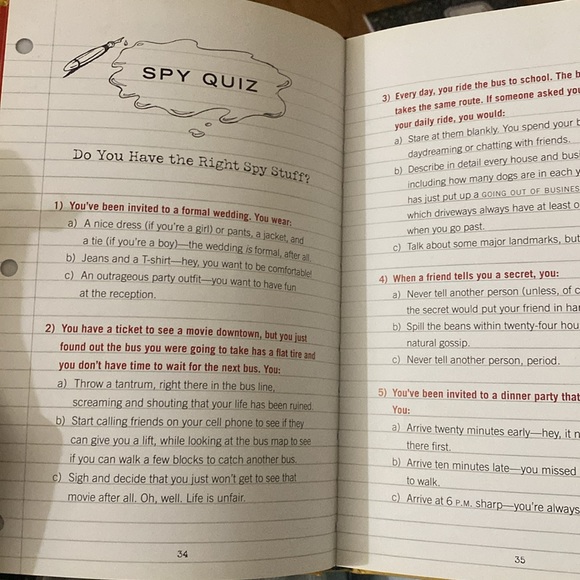 SPY QUIZ
Do You Have the Right Spy Stuff?
1) You've been invited to a formal wedding. You wear:
a) A nice dress (if you're a girl) or pants, a jacket, and
a tie (if you're a boy)—the wedding is formal, after all.
b) Jeans and a T-shirt—hey, you want to be comfortable!
c) An outrageous party outfit—you want to have fun
at the reception.
2) You have a ticket to see a movie downtown, but you just
found out the bus you were going to take has a flat tire and
you don't have time to wait for the next bus. You:
a) Throw a tantrum, right there in the bus line,
screaming and shouting that your life has been ruined.
b) Start calling friends on your cell phone to see if they
can give you a lift, while looking at the bus map to see
if you can walk a few blocks to catch another bus.
c) Sigh and decide that you just won't get to see that
movie after all. Oh, well. Life is unfair.
34
3) Every day, you ride the bus to school. The b
takes the same route. If someone asked you
your daily ride, you would:
a) Stare at them blankly. You spend your b
daydreaming or chatting with friends.
b) Describe in detail every house and busi
including how many dogs are in each y
has just put up a GOING OUT OF BUSINES
which driveways always have at least o
when you go past.
c) Talk about some major landmarks, but
4) When a friend tells you a secret, you:
a) Never tell another person (unless, of c
the secret would put your friend in har
b) Spill the beans within twenty-four hou
natural gossip.
c) Never tell another person, period.
5) You've been invited to a dinner party that
You:
a) Arrive twenty minutes early—hey, it n
there first.
b) Arrive ten minutes late—you missed
to walk.
c) Arrive at 6 P.M. sharp—you're always
35